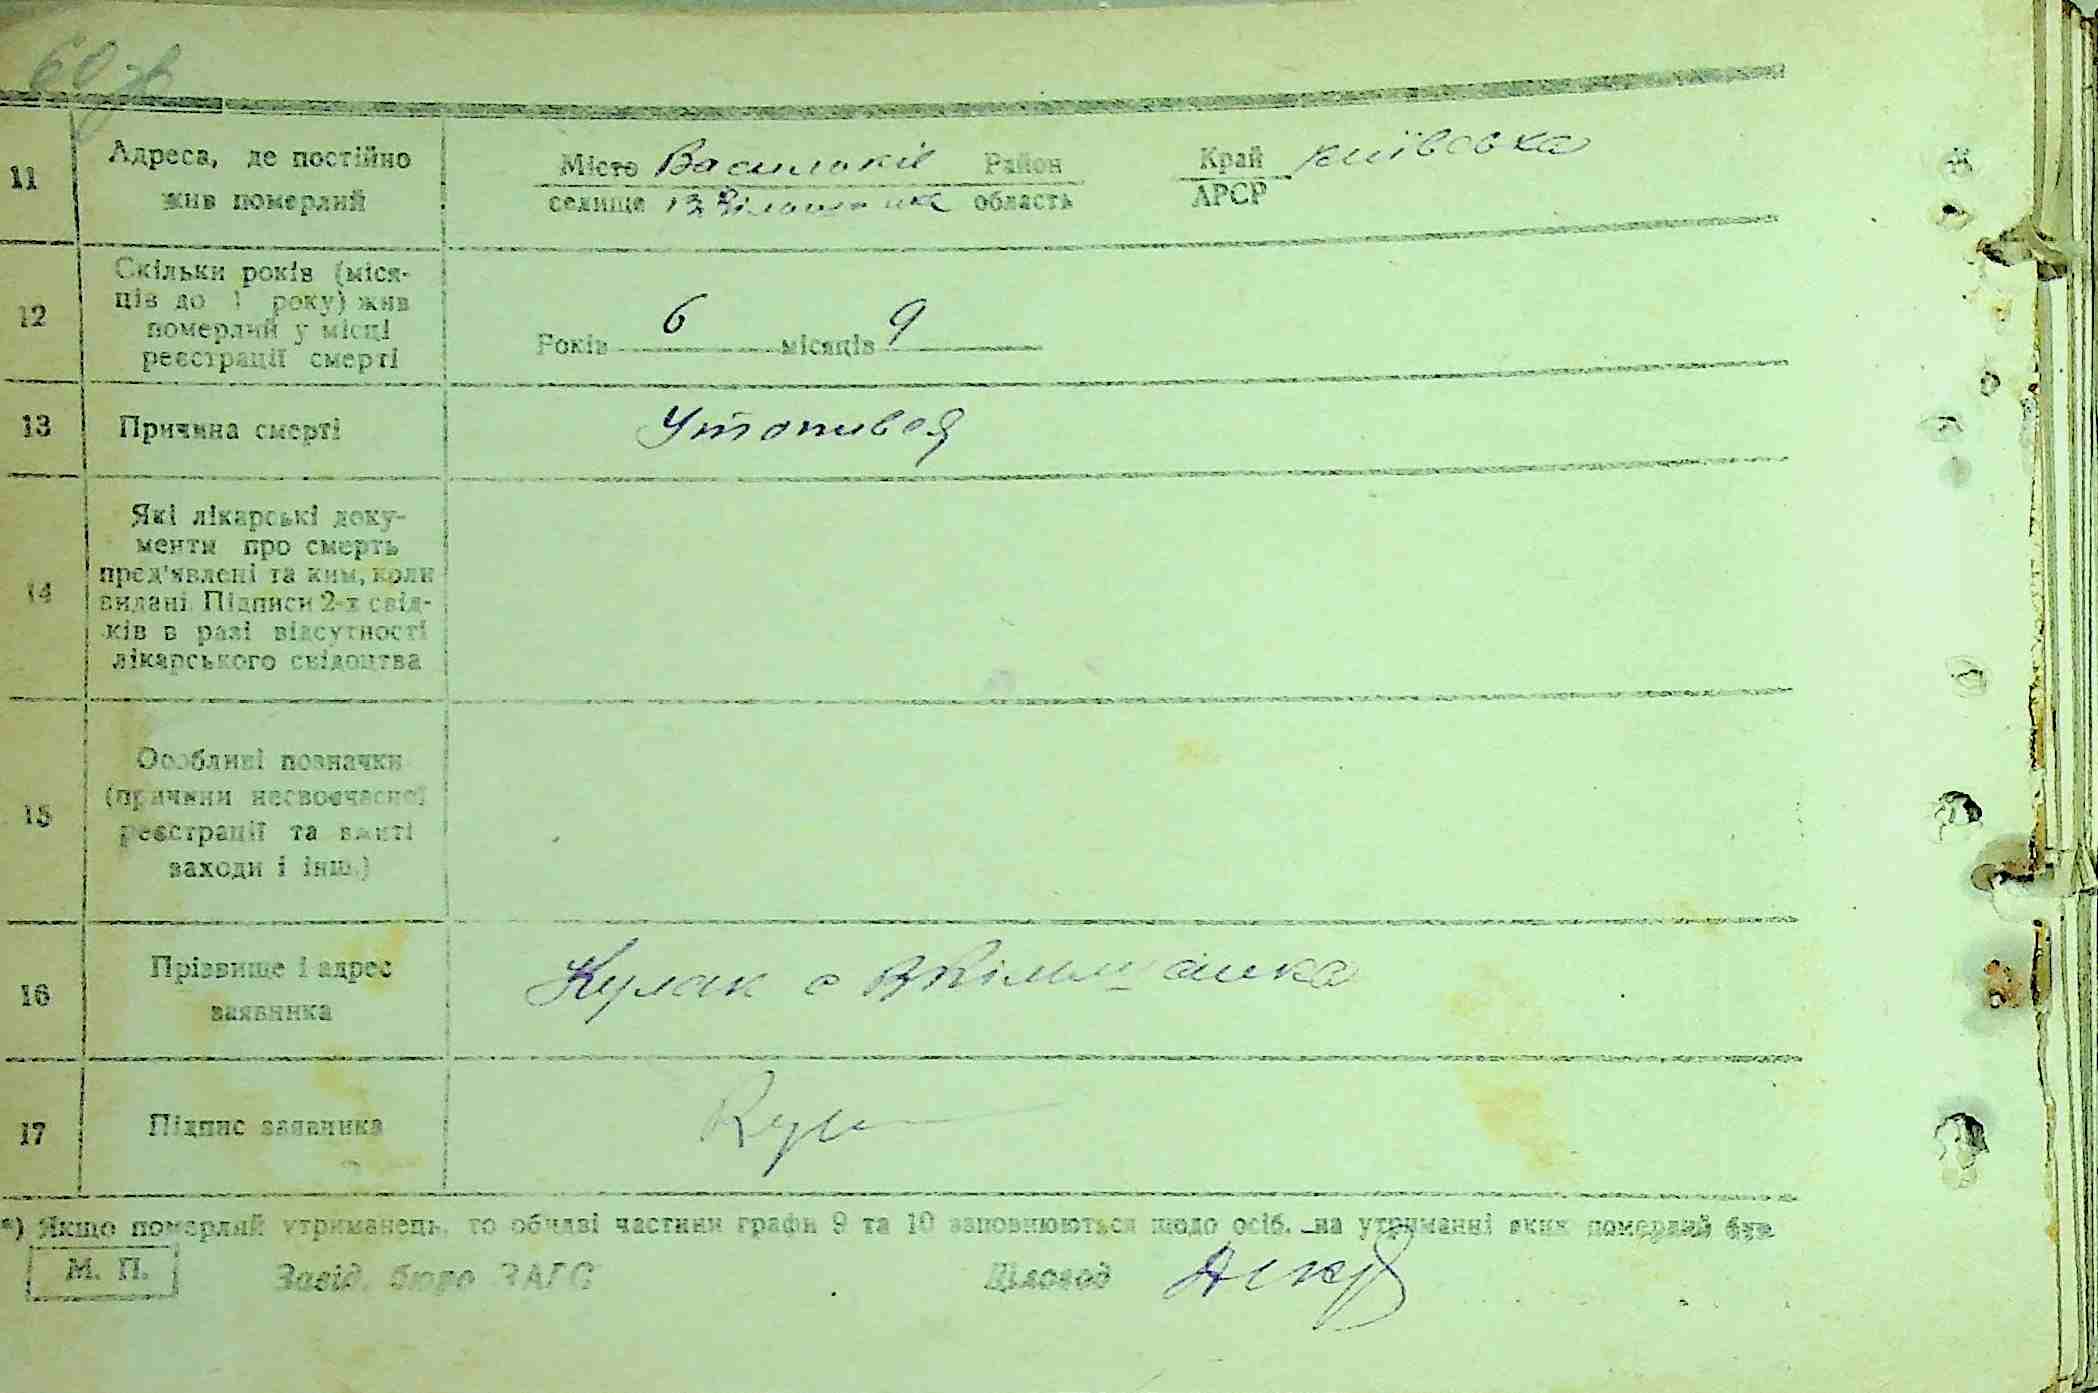 11
Адреса, де постійно
жив померлий
Місто Васильків Район
селище область
Край Київська
АРСР
12
Скільки років (міся-
ців до 1 року) жив
померлий у місці
реєстрації смерті
Років 6 місяців 9
13
Причина смерті
Утопився
14
Які лікарські доку-
менти про смерть
пред'явлені та ким, коли
видані. Підписи 2-х свід-
ків в разі відсутності
лікарського свідоцтва
15
Особливі позначки
(причини несвоєчасної
реєстрації та вжиті
заходи і інш.)
16
Прізвище і адрес
заявника
Кулак с
17
Підпис заявника
*) Якщо померлий утриманець, то обидві частини графи 9 та 10 заповнюються щодо осіб, на утриманні яких померлий був
М. П.
Завід. бюро ЗАГС
Діловод